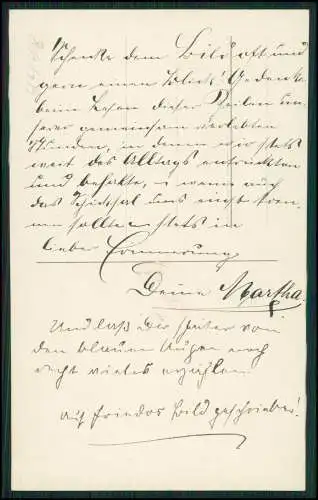 Schenke dem Bild oft und
gern einen Blick! Gedenke
beim Lesen dieser Zeilen un-
serer gemeinsam verlebten
Stunden, in denen wir stets
weit des Alltags entrückten
und behalte, wenn auch
das Schicksal uns einst tren-
nen sollte stets in
lieber Erinnerung
Deine Martha.
Und laß Dir später von
den blauen Augen noch
recht vieles erzählen
Auf Friedas Bild geschrieben!